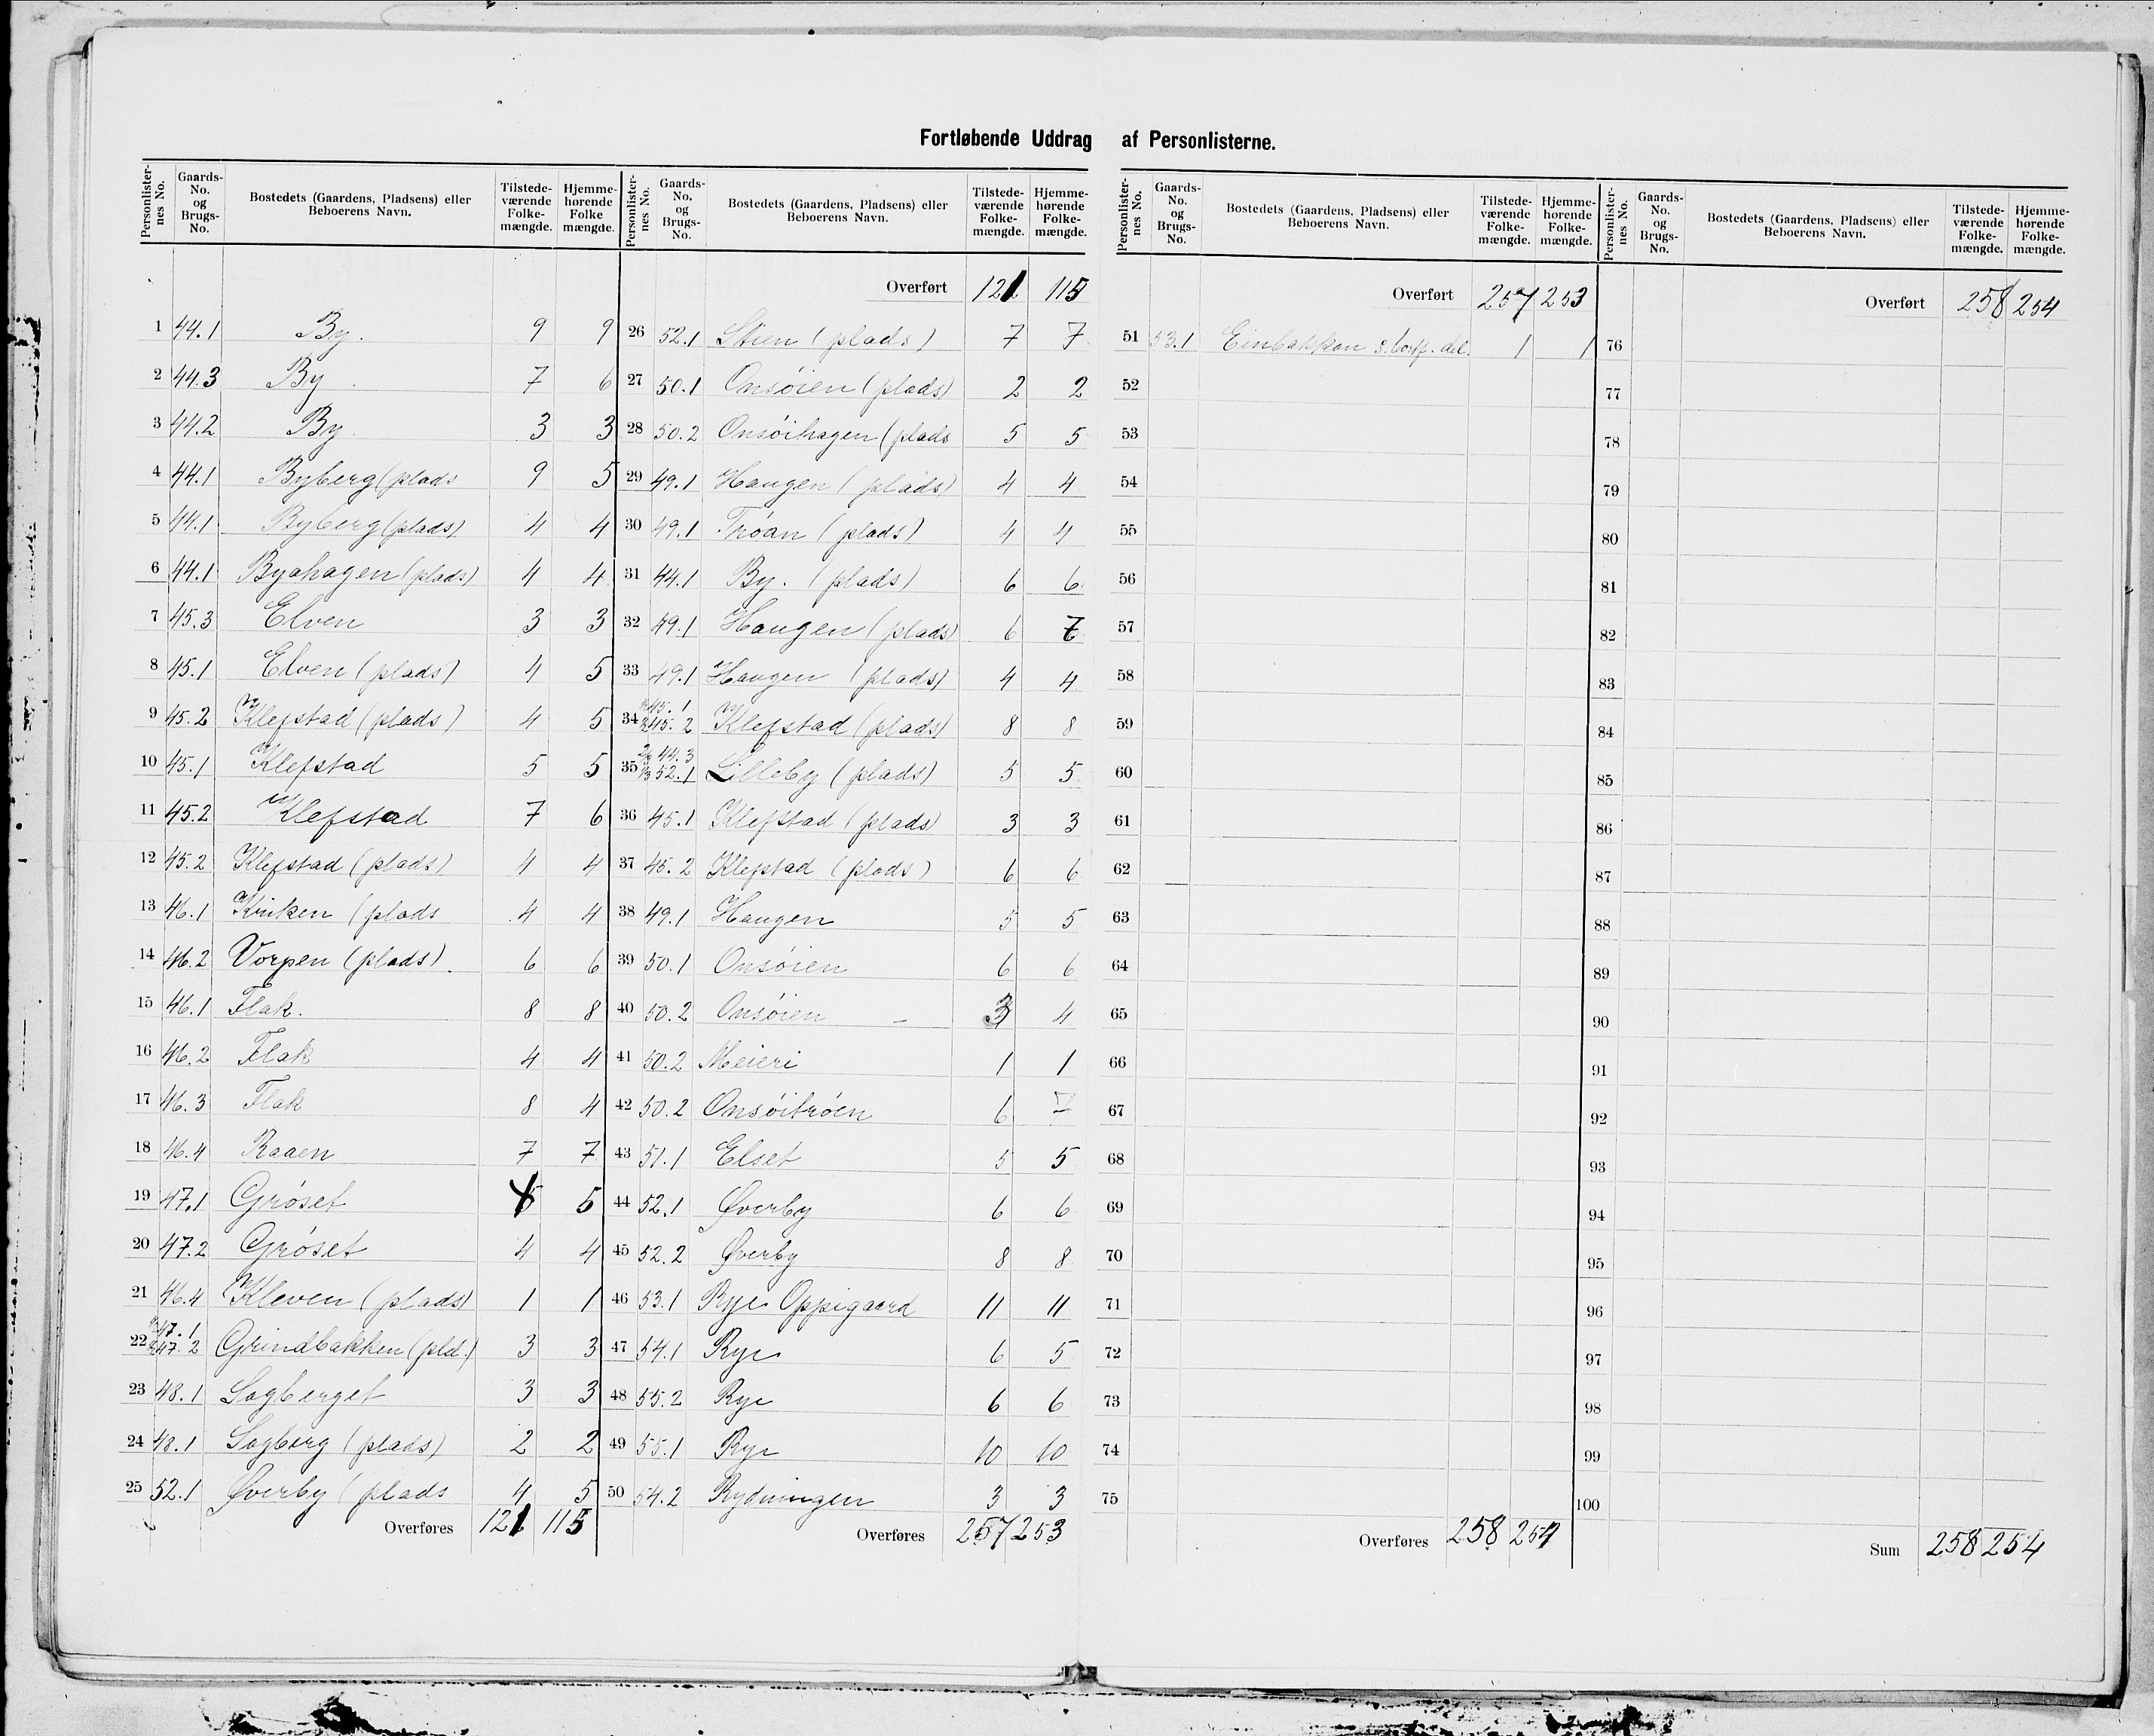 Fortløbende Uddrag af Personlisterne.
Personlister-nes No. Gaards-No. og Brugs-No. Bostedets (Gaardens, Pladsens) eller Beboerens Navn. Tilstede-værende Folke-mængde. Hjemme-hørende Folke mængde.
1 44.1 By. 9 9
2 44.3 By 7 6
3 44.2 By 3 3
4 44.1 Byberg (plads 9 5
5 44.1 Byberg (plads) 4 4
6 44.1 Byahagen (plads) 4 4
7 45.3 Elven 3 3
8 45.1 Elven (plads) 4 5
9 45.2 Klefstad (plads) 4 5
10 45.1 Klefstad 5 5
11 45.2 Klefstad 7 6
12 45.2 Klefstad (plads) 4 4
13 46.1 Kriken (plads 4 4
14 46.2 Vorpen (plads). 6 6
15 46.1 Flak. 8 8
16 46.2 Flak 4 4
17 46.3 Flak 8 4
18 46.4 Raaen 7 7
19 47.1 Grøset 5
20 47.2 Grøset 4 4
21 46.4 Kleven (plads) 1 1
22 47.1 47.2 Grindbakken (pld.) 3 3
23 48.1 Sagberget 3 3
24 48.1 Sagberg (plads) 2 2
25 52.1 Øverby (plads 4 5
Overføres 121 115
Personlister-nes No. Gaards-No. og Brugs-No. Bostedets (Gaardens, Pladsens) eller Beboerens Navn. Tilstede-værende Folke-mængde. Hjemme-hørende Folke-mængde.
Overført 121 115
26 52.1 Stien (plads) 7 7
27 50.1 Onsøien (plads) 2 2
28 50.2 Onsøihagen (plads 5 5
29 49.1 Haugen (plads) 4 4
30 49.1 Trøan (plads) 4 4
31 44.1 By. (plads) 6 6
32 49.1 Haugen (plads) 6 7
33 49.1 Haugen (plads) 4 4
34 45.1 45.2 Klefstad (plads) 8 8
35 2/3 44.3 1/3 52.1 Lilleby (plads) 5 5
36 45.1 Klefstad (plads) 3 3
37 45.2 Klefstad (plads) 6 6
38 49.1 Haugen 5 5
39 50.1 Onsøien 6 6
40 50.2 Onsøien – 3 4
41 50.2 Meieri 1 1
42 50.2 Onsøitrøen 6 7
43 51.1 Elset 5 5
44 52.1 Øverby 6 6
45 52.2 Øverby 8 8
46 53.1 Rye Oppigaard 11 11
47 54.1 Rye 6 5
48 55.2 Rye 6 6
49 55.1 Rye 10 10
50 54.2 Rydningen 3 3
Overføres 257 253
Personlister-nes No. Gaards-No. og Brugs-No. Bostedets (Gaardens, Pladsens) eller Beboerens Navn. Tilstede-værende Folke-mængde. Hjemme-hørende Folke-mængde.
Overført 257 253
51 53.1 Einbakkan 1 1
52
53
54
55
56
57
58
59
60
61
62
63
64
65
66
67
68
69
70
71
72
73
74
75
Overføres 258 254
Personlister-nes No. Gaards-No. og Brugs-No. Bostedets (Gaardens, Pladsens) eller Beboerens Navn. Tilstede-værende Folke-mængde. Hjemme-hørende Folke-mængde.
Overført 258 254
76
77
78
79
80
81
82
83
84
85
86
87
88
89
90
91
92
93
94
95
96
97
98
99
100
Sum 258 254